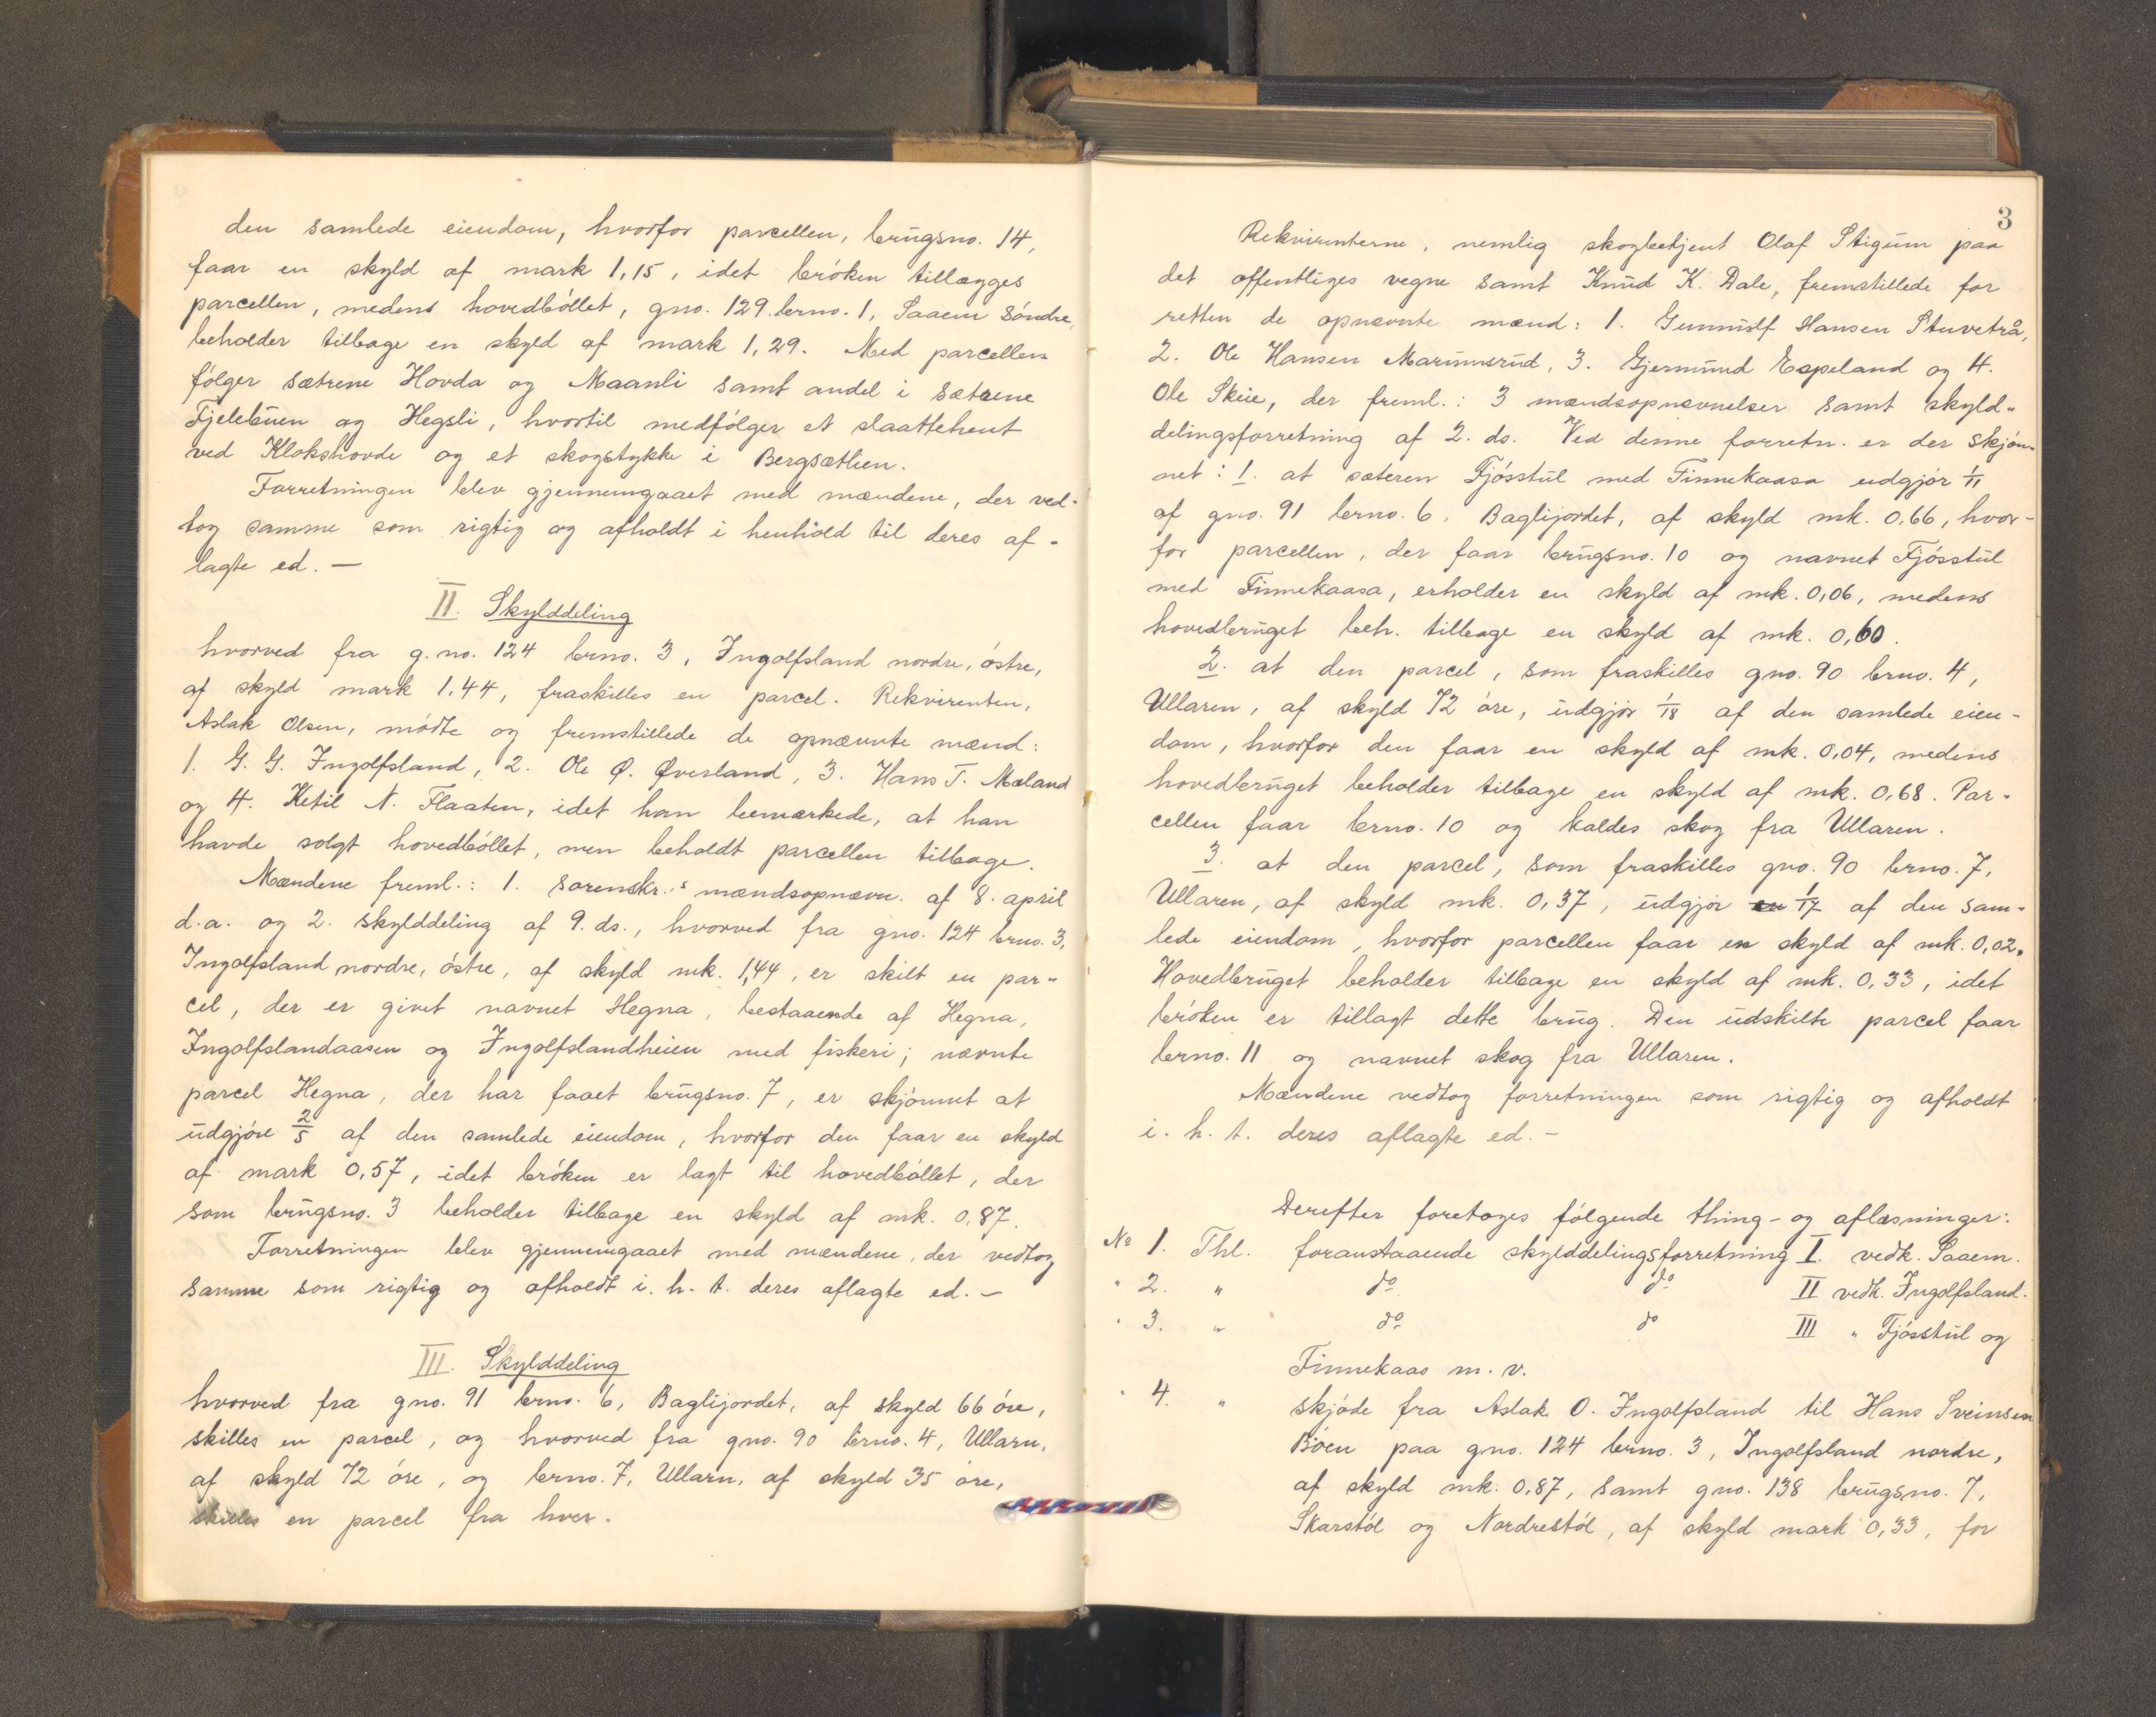 den samlede eiendom, hvorfor parcellen, brugsno. 14,
faar en skyld af mark 1,15, idet bröken tillægges
parcellen, medens hovedböllet, gno. 129. brno. 1, Saaem söndre,
beholder tilbage en skyld af mark 1,29. Med parcellen
fölger sætrene Hovda og Maanli samt andel i sætrene
Fjelebuen og Hegsli, hvortil medfölger et slaattehent
ved Klokshovde og et skogstykke i Bergsætlien.
Forretningen blev gjennemgaaet med mændene, der ved-
tog samme som rigtig og afholdt i henhold til deres af-
lagte ed. —
II. Skylddeling
hvorved fra g.no. 124 brno. 3, Ingolfsland nordre, östre,
af skyld mark 1,44, fraskilles en parcel. Rekvirenten,
Aslak Olsen, mödte og fremstillede de opnævnte mænd:
1. G. G. Ingolfsland, 2. Ole Ø. Øverland, 3. Hans T. Mæland
og 4. Ketil N. Flaaten, idet han bemærkede, at han
havde solgt hovedböllet, men beholdt parcellen tilbage.
Mændene freml.: 1. sorenskr.s mændsopnævn. af 8. april
d.a. og 2. skylddeling af 9. ds., hvorved fra gno. 124 brno. 3,
Ingolfsland nordre, östre, af skyld mk. 1,44, er skilt en par-
cel, der er givet navnet Hegna, bestaaende af Hegna,
Ingolfslandaasen og Ingolfslandheien med fiskeri; nævnte
parcel Hegna, der har faaet brugsno. 7, er skjönnet at
udgjöre 2/5 af den samlede eiendom, hvorfor den faar en skyld
af mark 0,57, idet bröken er lagt til hovedböllet, der
som brugsno. 3 beholder tilbage en skyld af mk. 0,87.
Forretningen blev gjennemgaaet med mændene, der vedtog
samme som rigtig og afholdt i. h. t. deres aflagte ed. —
III. Skylddeling
hvorved fra gno. 91 brno. 6, Baglijordet, af skyld 66 öre,
skilles en parcel, og hvorved fra gno. 90 brno. 4, Ullarn,
af skyld 72 öre, og brno. 7, Ullarn, af skyld 35 öre,
skilles en parcel fra hver.
3
Rekvirenterne, nemlig skogbetjent Olaf Stigum paa
det offentliges vegne samt Knud K. Dale, fremstillede for
retten de opnævnte mænd: 1. Gunnulf Hansen Stuvetrå,
2. Ole Hansen Marumsrud, 3. Gjermund Espeland og 4.
Ole Skeie, der freml.: 3 mændsopnævnelser samt skyld-
delingsforretning af 2. ds. Ved denne forretn. er der skjön-
net: 1. at sæteren Fjösstul med Finnekaasa udgjör 1/11
af gno. 91 brno. 6, Baglijordet, af skyld mk. 0,66, hvor-
for parcellen, der faar brugsno. 10 og navnet Fjösstul
med Finnekaasa, erholder en skyld af mk. 0,06, medens
hovedbruget beh. tilbage en skyld af mk. 0,60.
2. at den parcel, som fraskilles gno. 90 brno. 4,
Ullaren, af skyld 72 öre, udgjör 1/18 af den samlede eien-
dom, hvorfor den faar en skyld af mk. 0,04, medens
hovedbruget beholder tilbage en skyld af mk. 0,68. Par-
cellen faar brno. 10 og kaldes skog fra Ullaren.
3. at den parcel, som fraskilles gno. 90 brno. 7,
Ullaren, af skyld mk. 0,37, udgjör en 1/17 af den sam-
lede eiendom, hvorfor parcellen faar en skyld af mk. 0,02.
Hovedbruget beholder tilbage en skyld af mk. 0,33, idet
bröken er tillagt dette brug. Den udskilte parcel faar
brno. 11 og navnet skog fra Ullaren.
Mændene vedtog forretningen som rigtig og afholdt
i. h. t. deres aflagte ed. —
Derefter foretoges fölgende thing- og aflæsninger:
No 1. Thl. foranstaaende skylddelingsforretning I. vedk. Saaem.
" 2. " do do II vedk. Ingolfsland.
" 3. " do do III " Fjösstul og
Finnekaas m. v.
" 4. " skjöde fra Aslak O. Ingolfsland til Hans Sveinsen
Böen paa gno. 124 brno. 3, Ingolfsland nordre,
af skyld mk. 0,87, samt gno. 138 brugsno. 7,
Skarstöl og Nordrestöl, af skyld mark 0,33, for